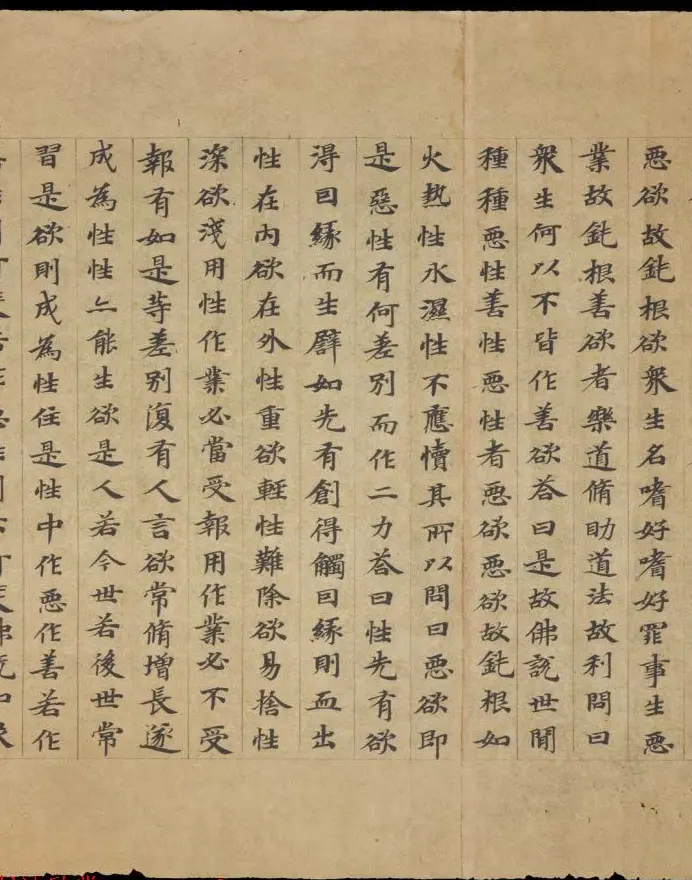 惡欲故鈍根欲衆生名嗜好嗜好罪事生惡
業故鈍根善欲者樂道脩助道法故利問曰
衆生何以不皆作善欲荅曰是故佛說世間
種種惡性善性惡性者惡欲惡欲故鈍根如
火熱性水濕性不應責其所以問曰惡欲即
是惡性有何差別而作二力荅曰性先有欲
得因緣而生譬如先有創得觸因緣則血出
性在內欲在外性重欲輕性難除欲易捨性
深欲淺用性作業必當受報用作業必不受
報有如是等差別復有人言欲常脩增長遂
成為性性亦能生欲是人若今世若後世常
習是欲則成為性住是性中作惡作善若作